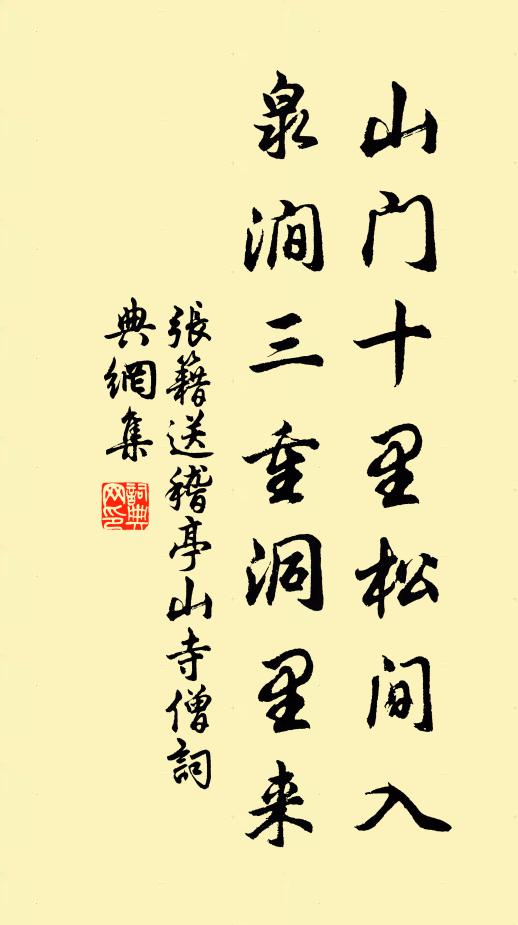 山门十里松间入
泉涧三重洞里来
張籍送稽亭山寺僧詞
典網集
詞典網印